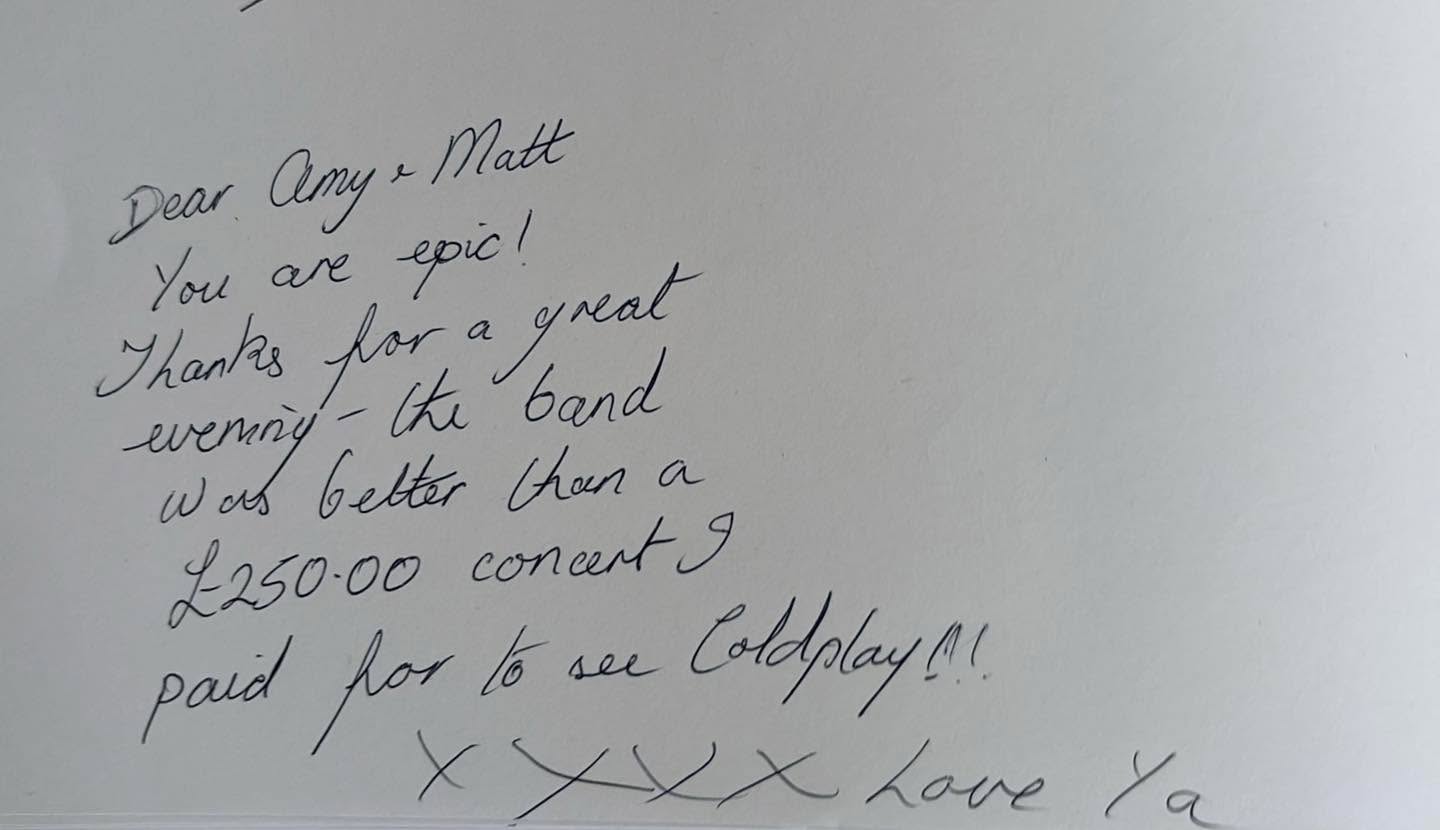 Dear Amy & Matt
You are epic!
Thanks for a great
evening - the band
was better than a
£250.00 concert I
paid for to see Coldplay!!!
X X X X Love Ya